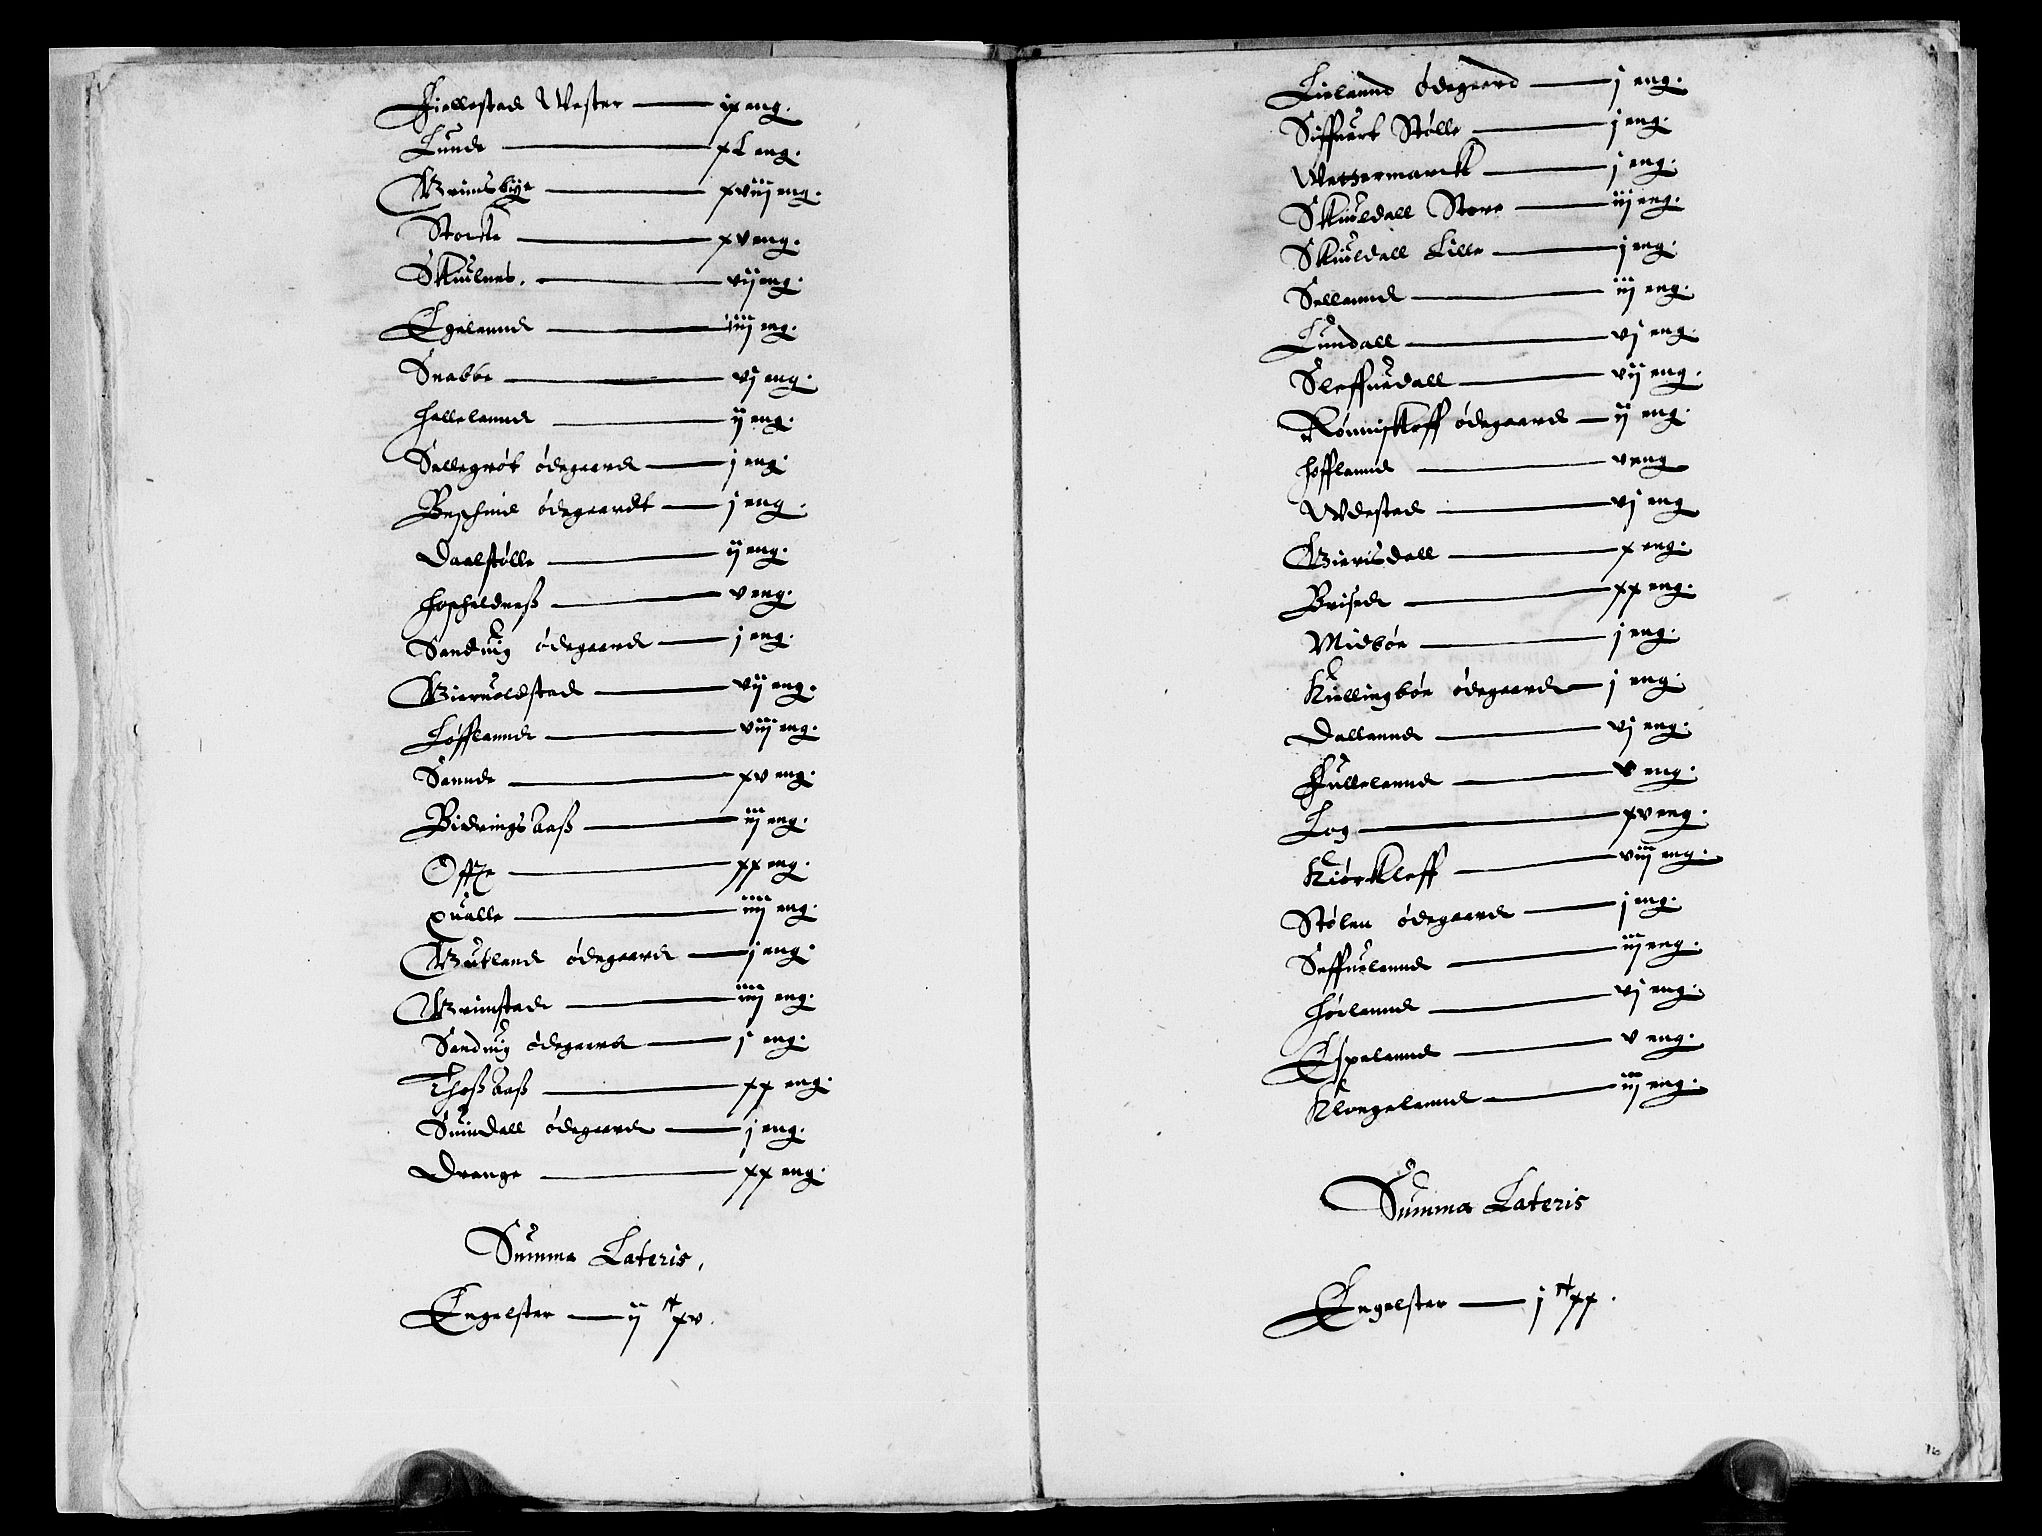 Fiellestad Wester — ix eng.
Lunde — xl eng.
Grimsbye — xviij eng.
Stocke — xv eng.
Skiulnes. — vij eng.
Egelannd — iiij eng.
Snabbe — vj eng.
Hellelannd — ij eng.
Sellegrøt ødegaard — j eng.
Ødegaardt — j eng.
Daalstølle — ij eng.
v eng.
Sanduig ødegaard — j eng.
Gieruoldstad — vij eng.
Løfflannd — viij eng.
Sannde — xv eng.
Bidringsaaß — iij eng.
Offte — xx eng.
Qualle — iiij eng.
Gutland ødegaard — j eng.
Grimstad — iiij eng.
Sanduig ødegaard — j eng.
Thoßaaß — xx eng.
Suindall ødegaard — j eng.
Drange — xx eng.
Summa Lateris,
Engelster — ij c xv.
Lielannd ødegaard — j eng.
Siffuert Stølle — j eng.
Wettermarck — j eng.
Skiuldall Store — iij eng.
Skiuldall Lille — j eng.
Sellannd — iij eng.
Lundall — vj eng.
Sleffuedall — vij eng.
Rønniskleff ødegaard — ij eng.
Hofflannd — v eng
Udestad — vj eng
Gierisdall — x eng.
Brisede — xx eng.
Midbøe — j eng.
Kiellingbøe ødegaard — j eng.
Dallannd — vj eng.
Fullelannd — v eng.
Log — xv eng.
Kiørkleff — viij eng.
Stølen ødegaard — j eng.
Seffuelannd — iij eng.
Høelannd — vj eng.
Espelannd — v eng.
Klongelannd — iij eng.
Summa Lateris
Engelster — j c xx.
16